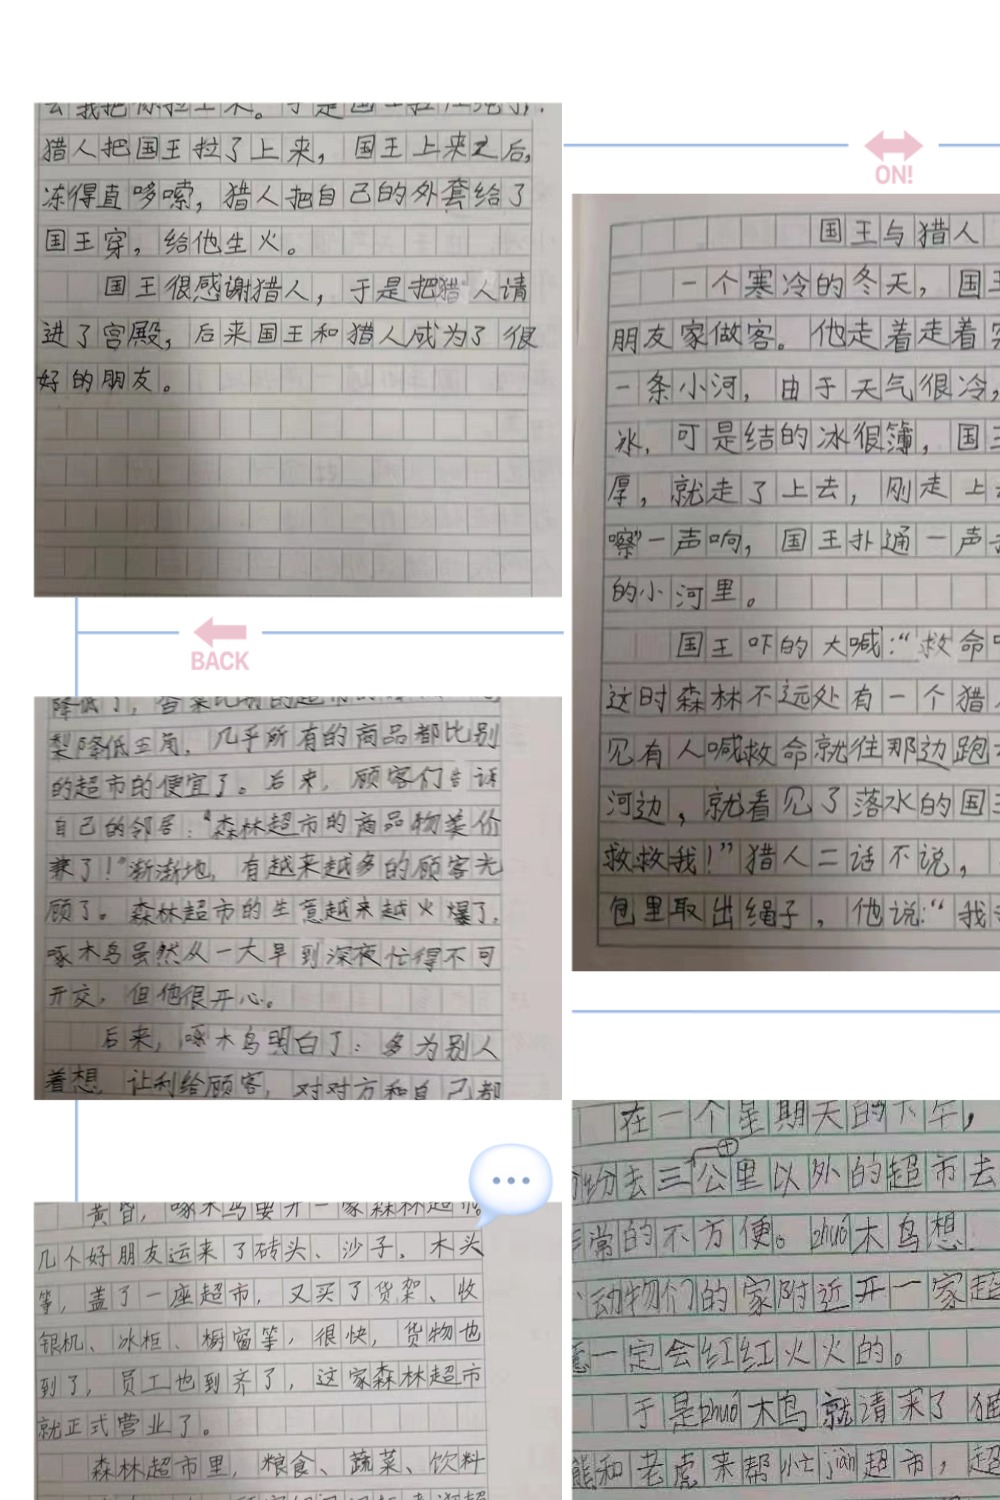 猎人把国王拉了上来，国王上来之后，
冻得直哆嗦，猎人把自己的外套给了
国王穿，给他生火。
国王很感谢猎人，于是把猎人请
进了宫殿，后来国王和猎人成为了很
好的朋友。
ON!
国王与猎人
一个寒冷的冬天，国王
朋友家做客。他走着走着
一条小河，由于天气很冷，
冰，可是结的冰很簿，国王
厚，就走了上去，刚走上
嚓”一声响，国王扑通一声
的小河里。
国王吓的大喊：“救命
这时森林不远处有一个猎
见有人喊救命就往那边跑
河边，就看见了落水的国王
救救我！”猎人二话不说，
包里取出绳子，他说：“我
BACK
梨降低五角，几乎所有的商品都比别
的超市的便宜了。后来，顾客们告诉
自己的邻居：“森林超市的商品物美价
兼了！”渐渐地，有越来越多的顾客光
顾了。森林超市的生意越来越火爆了，
啄木鸟虽然从一大早到深夜忙得不可
开交，但他很开心。
后来，啄木鸟明白了：多为别人
着想，让利给顾客，对对方和自己都
黄昏，啄木鸟要开一家森林超市。
几个好朋友运来了砖头、沙子，木头
等，盖了一座超市，又买了货架、收
银机、冰柜、橱窗等，很快，货物也
到了，员工也到齐了，这家森林超市
就正式营业了。
森林超市里，粮食、蔬菜、饮料
在一个星期天的下午，
纷纷去三公里以外的超市去
非常的不方便。zhuó木鸟想
动物们的家附近开一家超
意一定会红红火火的。
于是zhuó木鸟就请来了
熊和老虎来帮忙jiàn超市，超